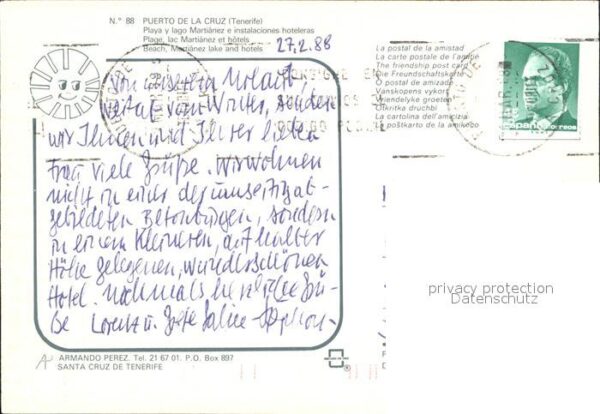 N.° 88 PUERTO DE LA CRUZ (Tenerife)
Playa y lago Martiánez e instalaciones hoteleras
Plage, lac Martiánez et hôtels
Beach, Martiánez lake and hotels
27.2.88
Von unserem Urlaub,
vom Winter, senden
wir Ihnen und Ihrer lieben
Frau viele Grüße. Wir wohnen
nicht in einer der umseitig ab-
gebildeten Betonburgen, sondern
in einem kleineren, auf halber
Höhe gelegenen, wunderschönen
Hotel. Nochmals herzliche Grü-
ße Lorenz u. Grete
La postal de la amistad
La carte postale de l'amitié
The friendship post card
Die Freundschaftskarte
O postal de amizade
Vanskopens vykort
Vriendelyke groeten
Otkritka druchbi
La cartolina dell'amicizia
La poŝtkarto de la amikeco
España correos
privacy protection
Datenschutz
ARMANDO PEREZ. Tel. 21 67 01. P.O. Box 897
SANTA CRUZ DE TENERIFE